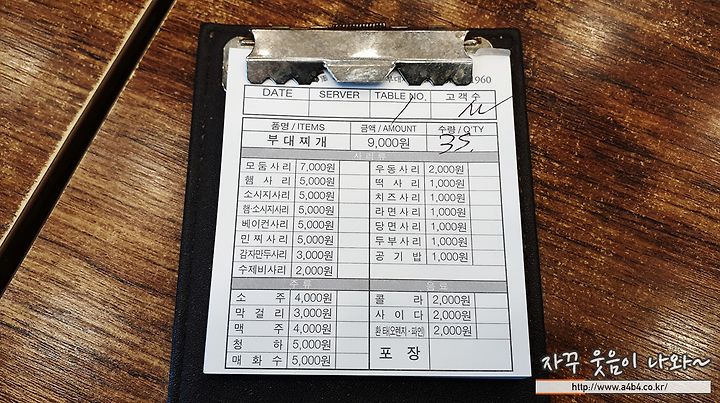 1960
DATE SERVER TABLE NO. 고객수
品명 / ITEMS 금액 / AMOUNT 수량 / Q'TY
부대찌개 9,000원 35,
사리류
모둠사리 7,000원 우동사리 2,000원
햄사리 5,000원 떡사리 1,000원
소시지사리 5,000원 치즈사리 1,000원
햄·소시지사리 5,000원 라면사리 1,000원
베이컨사리 5,000원 당면사리 1,000원
민찌사리 5,000원 두부사리 1,000원
감자만두사리 3,000원 공기밥 1,000원
수제비사리 2,000원
주류 음료
소주 4,000원 콜라 2,000원
막걸리 3,000원 사이다 2,000원
맥주 4,000원 환타(오렌지·파인) 2,000원
청하 5,000원 포장
매화수 5,000원
자꾸 웃음이 나와~
http://www.a4b4.co.kr/